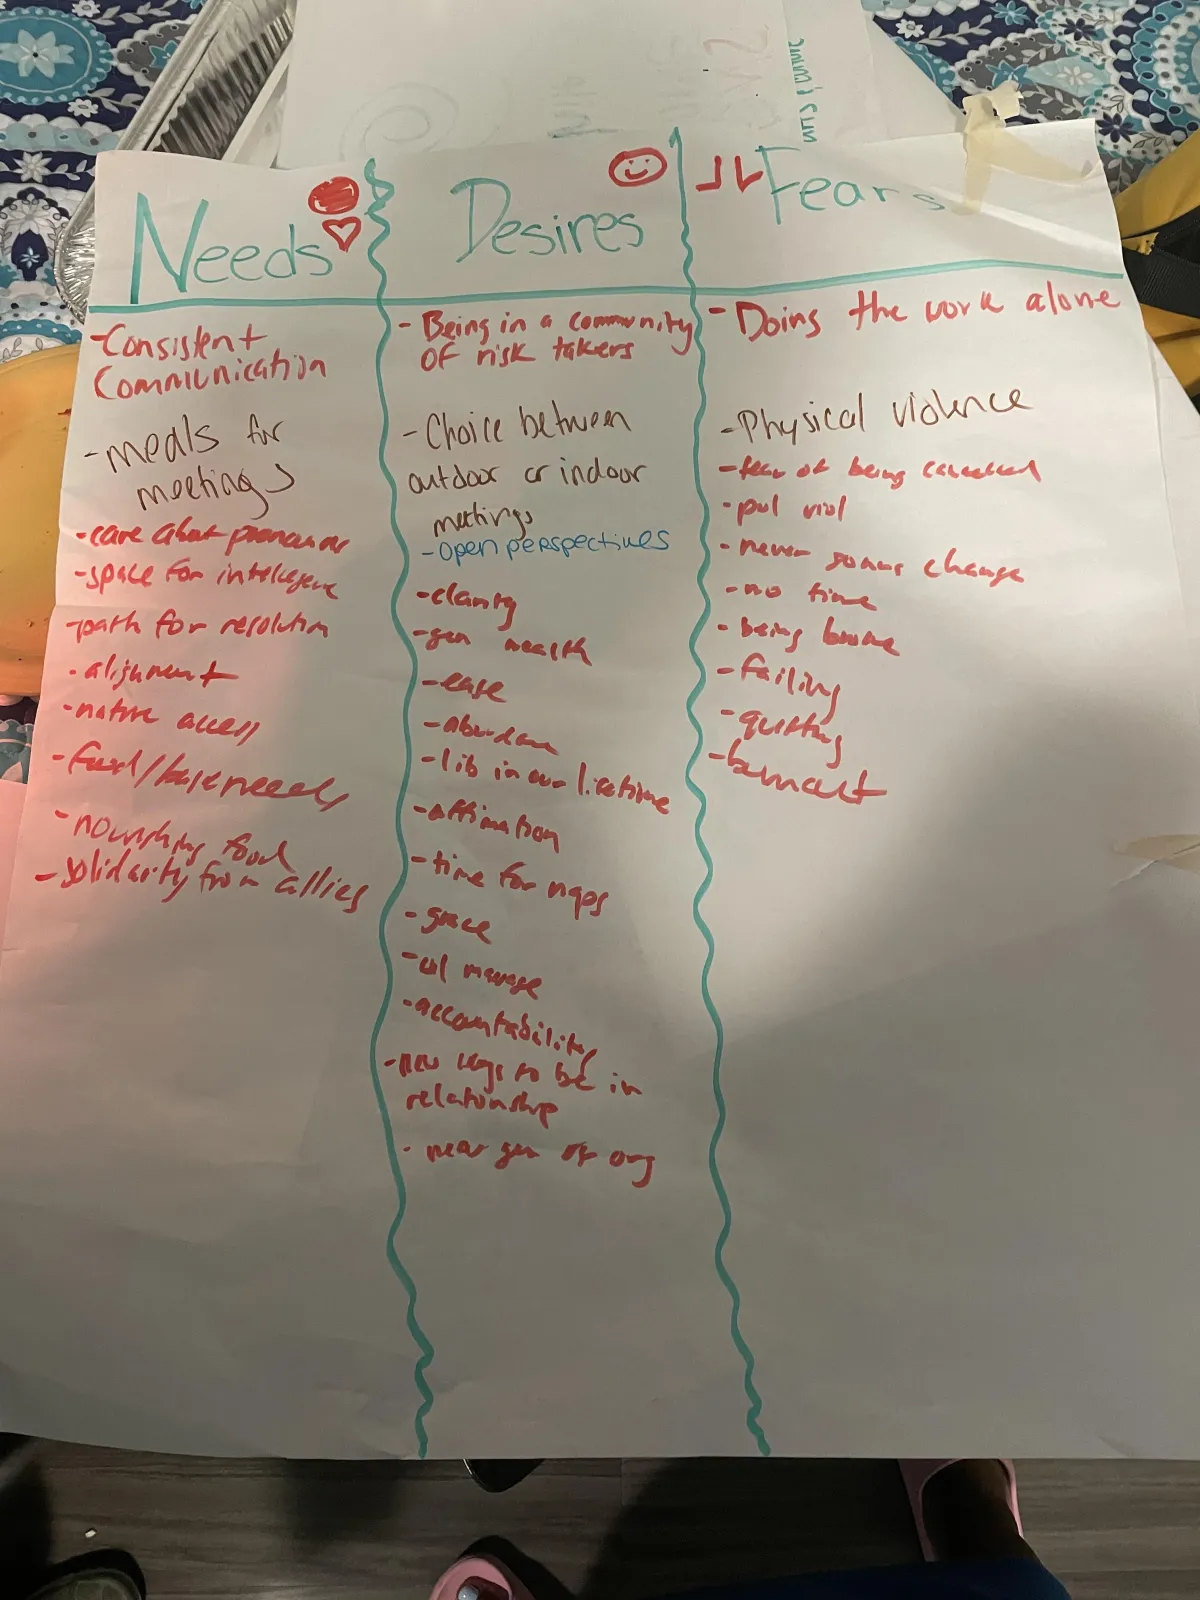 Needs
- Consistent
Communication
- meals for
meetings
- care about pronouns
- space for intelligence
- path for resolution
- alignment
- nature access
- food/base needs
- nourishing food
- solidarity from allies
Desires
- Being in a community
OF risk takers
- Choice between
outdoor or indoor
meetings
- open perspectives
- clarity
- gen wealth
- ease
- abundance
- lib in our lifetime
- affirmation
- time for naps
- grace
- manage
- accountability
- new ways to be in
relationship
- gen of org
Fears
- Doing the work alone
- Physical violence
- fear of being cancelled
- pol viol
- never change
- no time
- being
- failing
- quitting
- burnout